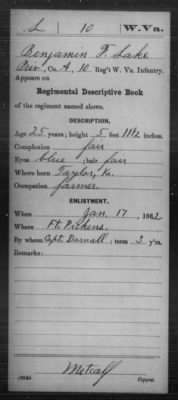 L | 10 | W. Va.
Benjamin F. Lake
Priv., Co. A, 10 Reg't W. Va. Infantry.
Appears on
Regimental Descriptive Book
of the regiment named above.
DESCRIPTION.
Age 25 years; height 5 feet 11 1/2 inches.
Complexion fair
Eyes blue; hair fair
Where born Taylor, Va.
Occupation farmer.
ENLISTMENT.
When Jan 17, 1862
Where Ft. Pickens.
By whom Capt. Darnall; term 3 y'rs.
Remarks:
Metcalf
Copyist.